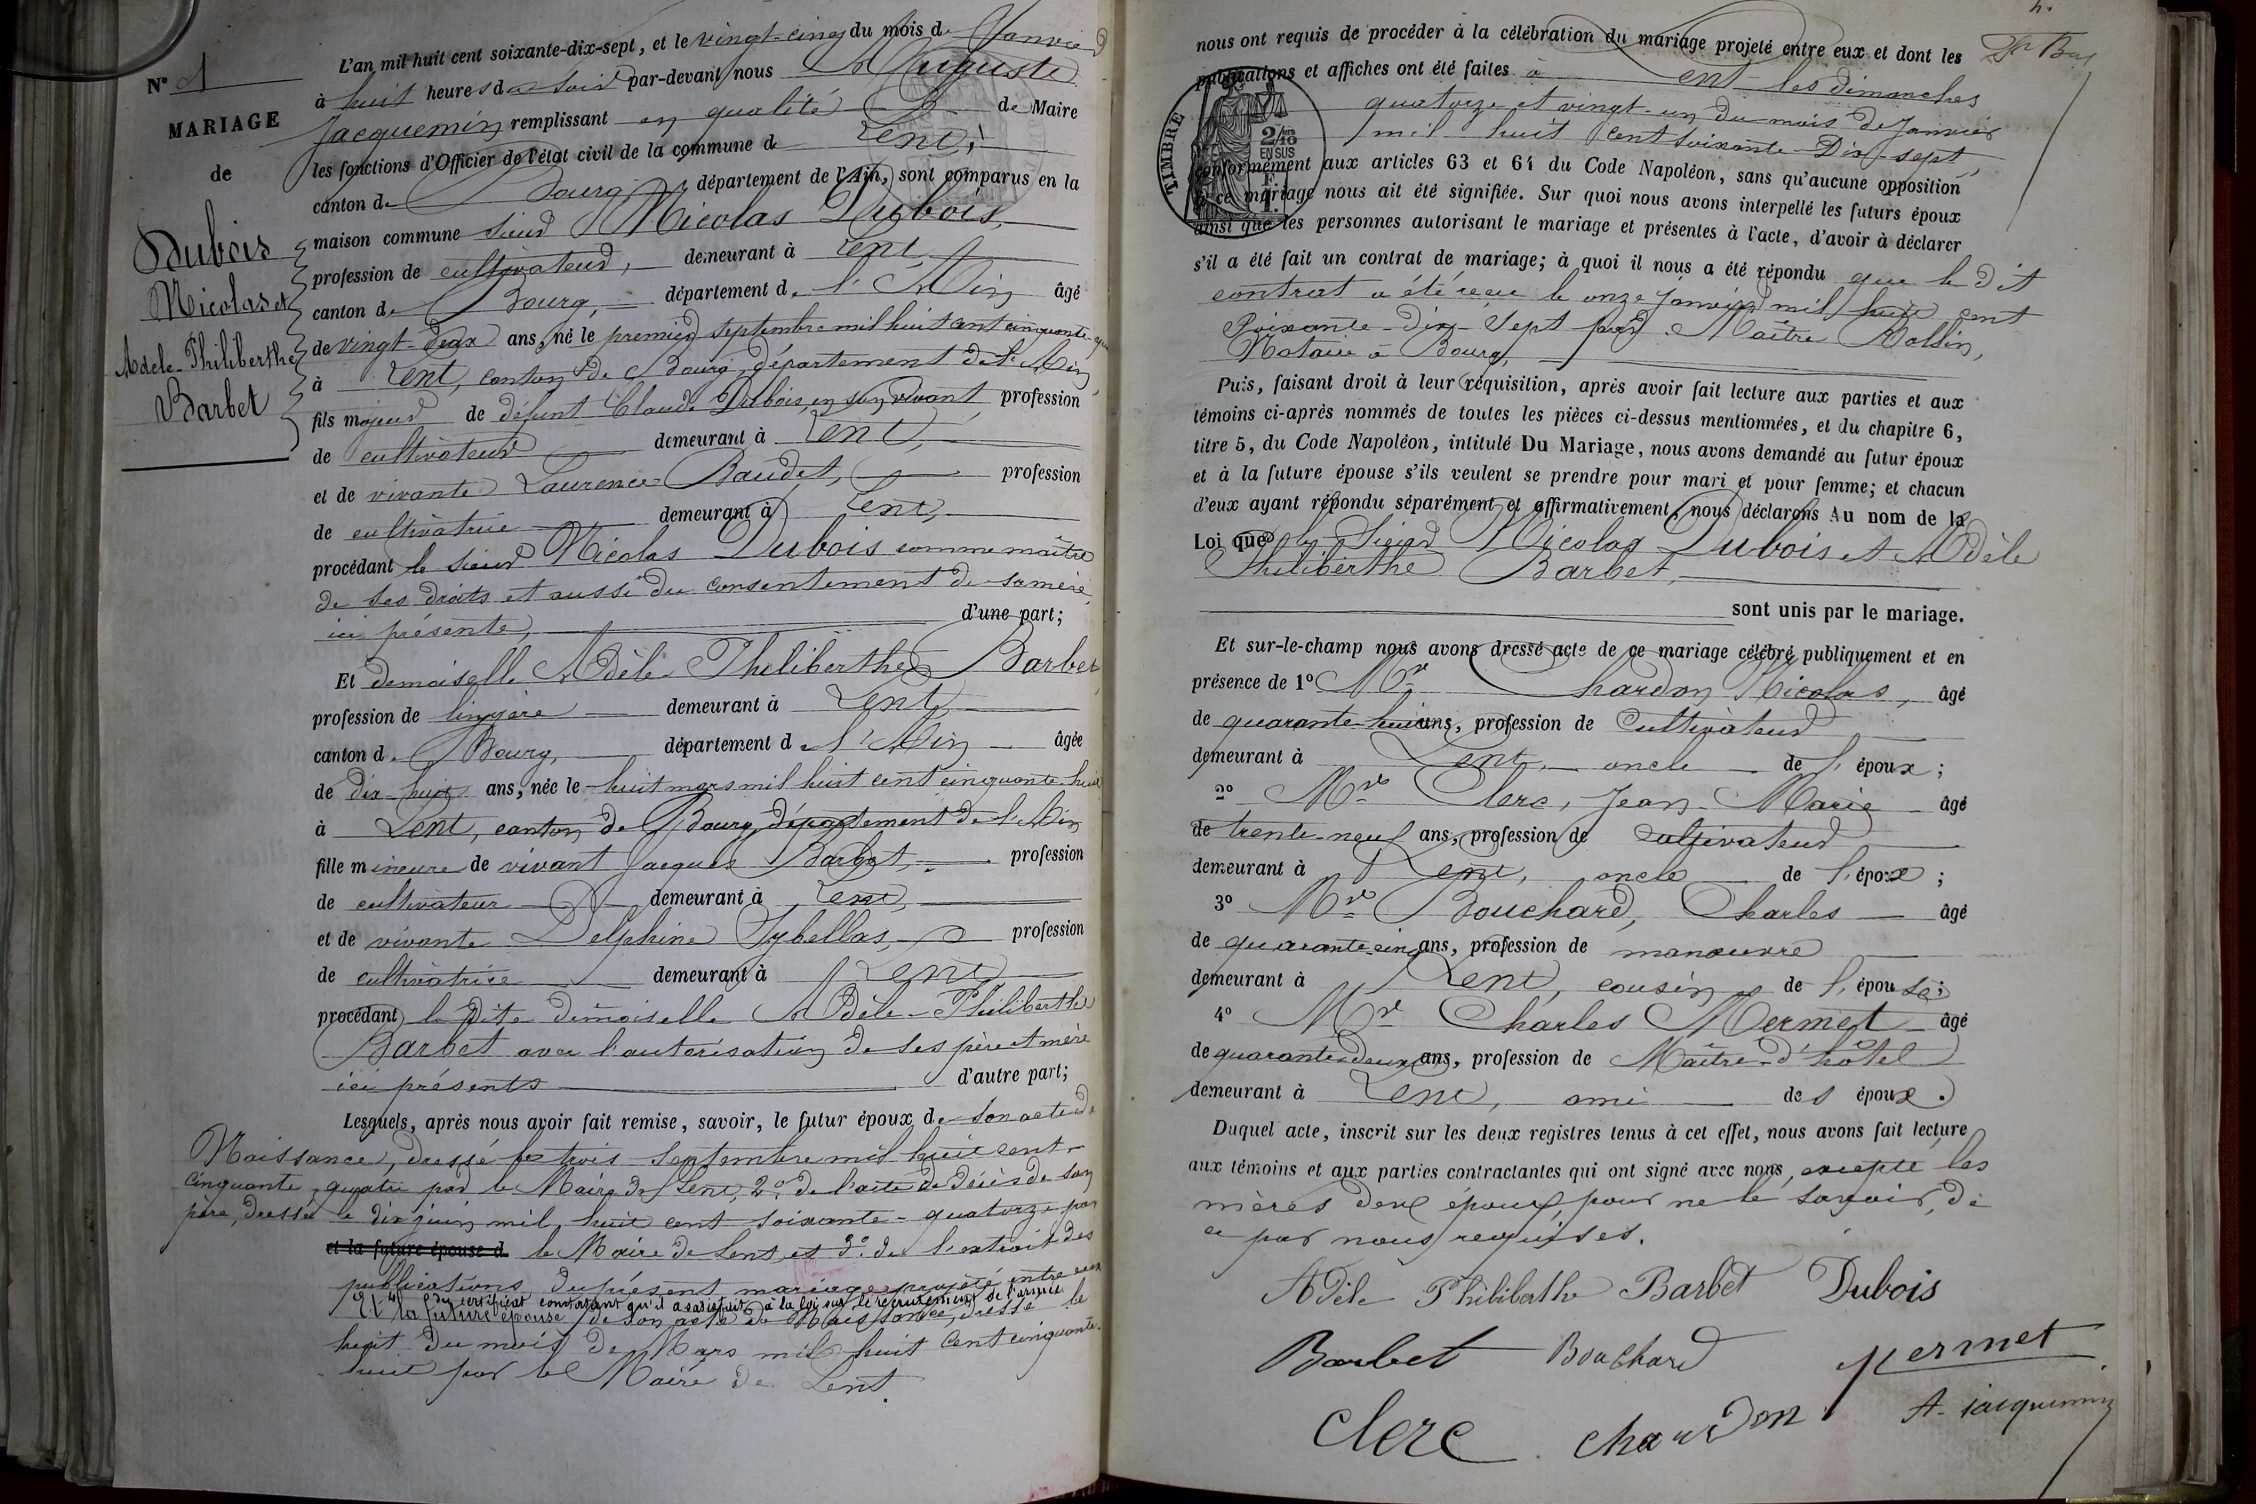 N° 1
MARIAGE
de
Dubois
Nicolas et
Adèle-Philiberthe
Barbet
L'an mil huit cent soixante-dix-sept, et le vingt-cinq du mois de Janvier
à huit heures du soir par-devant nous Auguste
Jacquemin remplissant en qualité de Maire
les fonctions d'Officier de l'état civil de la commune de Lent,
canton de Bourg département de l'Ain, sont comparus en la
maison commune sieur Nicolas Dubois,
profession de cultivateur, demeurant à Lent,
canton de Bourg, département de l'Ain âgé
de vingt-deux ans, né le premier septembre mil huit cent cinquante-
à Lent, canton de Bourg, département de l'Ain,
fils majeur de défunt Claude Dubois, en son vivant profession
de cultivateur demeurant à Lent,
et de vivante Laurence Baudet, profession
de cultivatrice demeurant à Lent,
procédant le sieur Nicolas Dubois comme maître
de ses droits et aussi du consentement de sa mère
ici présente, d'une part;
Et demoiselle Adèle Philiberthe Barbet
profession de lingère demeurant à Lent,
canton de Bourg, département de l'Ain âgée
de dix-huit ans, née le huit mars mil huit cent cinquante-huit
à Lent, canton de Bourg, département de l'Ain
fille mineure de vivant Jacques Barbet, profession
de cultivateur demeurant à Lent,
et de vivante Delphine Sybellas, profession
de cultivatrice demeurant à Lent
procédant la dite demoiselle Adèle-Philiberthe
Barbet avec l'autorisation de ses père et mère
ici présents d'autre part;
Lesquels, après nous avoir fait remise, savoir, le futur époux de son acte de
Naissance, dressé le trois Septembre mil huit cent-
cinquante-quatre par le Maire de Lent, 2° de l'acte de décès de son
père, dressé le dix juin mil huit cent soixante-quatorze par
et la future épouse d le Maire de Lent, et 3° de l'extrait des
publications du présent mariage projeté entre eux
4° du certificat constatant qu'il a satisfait à la loi sur le recrutement de l'armée
Et la future épouse de son acte de Naissance, dressé le
huit du mois de Mars mil huit cent cinquante-
huit par le Maire de Lent.
nous ont requis de procéder à la célébration du mariage projeté entre eux et dont les
publications et affiches ont été faites à Lent les dimanches
quatorze et vingt-un du mois de Janvier
mil huit cent soixante-Dix-sept,
TIMBRE
2/10
EN SUS
conformément aux articles 63 et 64 du Code Napoléon, sans qu'aucune opposition
à ce mariage nous ait été signifiée. Sur quoi nous avons interpellé les futurs époux
ainsi que les personnes autorisant le mariage et présentes à l'acte, d'avoir à déclarer
s'il a été fait un contrat de mariage; à quoi il nous a été répondu que le dit
contrat a été reçu le onze janvier mil huit cent
Soixante-dix-sept par Maître
Notaire à Bourg,
Puis, faisant droit à leur réquisition, après avoir fait lecture aux parties et aux
témoins ci-après nommés de toutes les pièces ci-dessus mentionnées, et du chapitre 6,
titre 5, du Code Napoléon, intitulé Du Mariage, nous avons demandé au futur époux
et à la future épouse s'ils veulent se prendre pour mari et pour femme; et chacun
d'eux ayant répondu séparément et affirmativement, nous déclarons Au nom de la
Loi que le Sieur Nicolas Dubois et Adèle
Philiberthe Barbet,
sont unis par le mariage.
Et sur-le-champ nous avons dressé acte de ce mariage célébré publiquement et en
présence de 1° Mr Chardon Nicolas, âgé
de quarante-huit ans, profession de Cultivateur
demeurant à Lent, oncle de l'époux;
2° Mr Clerc, Jean-Marie âgé
de trente-neuf ans, profession de cultivateur
demeurant à Lent, oncle de l'époux;
3° Mr Bouchard, Charles âgé
de quarante-cinq ans, profession de manœuvre
demeurant à Lent, cousin de l'épouse;
4° Mr Charles Mermet âgé
de quarante-deux ans, profession de Maître-d'hôtel
demeurant à Lent, ami des époux.
Duquel acte, inscrit sur les deux registres tenus à cet effet, nous avons fait lecture
aux témoins et aux parties contractantes qui ont signé avec nous, excepté les
mères des époux, pour ne le savoir, de
ce par nous requises.
Adèle Philiberthe Barbet Dubois
Barbet Bouchard Mermet
Clerc Chardon A. Jacquemin